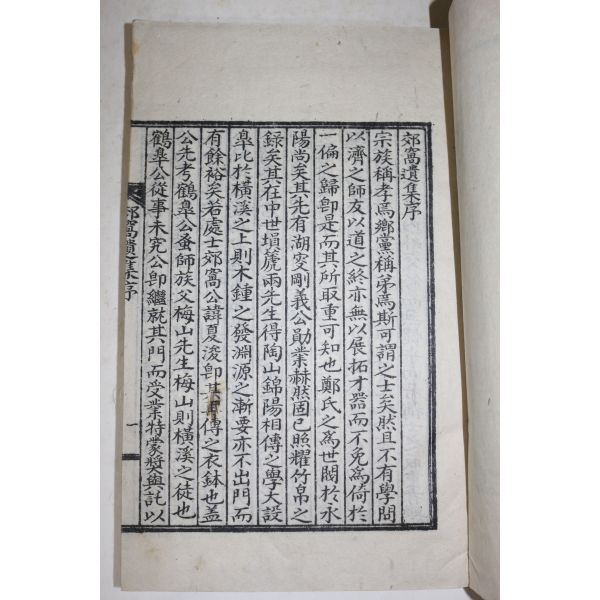 郊窩遺集序
宗族稱孝焉鄉黨稱弟焉斯可謂之士矣然且不有學問
以濟之師友以道之終亦無以展拓才器而不免為倚於
一偏之歸卽是而其所取重可知也鄭氏之為世閥於永
陽尚矣其先有湖叟剛義公勛業赫然固已照耀竹帛之
錄矣其在中世塤篪兩先生得陶山錦陽相傳之學大設
皐比於橫溪之上則木鍾之發淵源之漸要亦不出門而
有餘裕矣若處士郊窩公諱夏浚卽其傳之衣鉢也蓋
公先考鶴皐公蚤師族父梅山先生梅山則橫溪之徒也
鶴皐公從事未究公卽繼就其門而受業特蒙奬與託以
郊窩遺集序
一